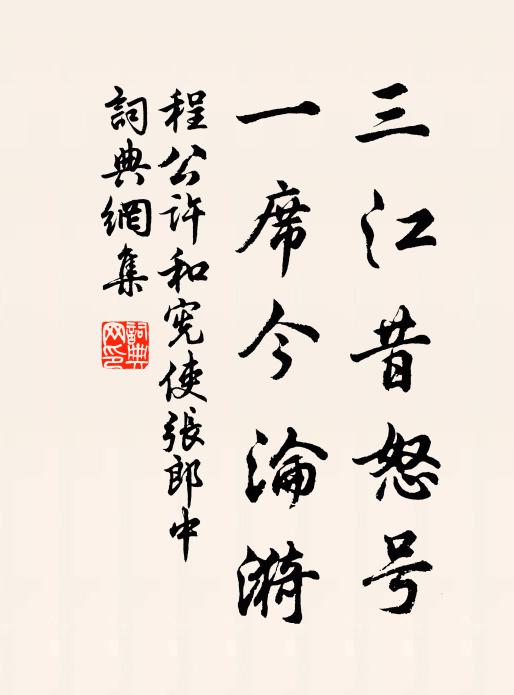 三江昔怒号
一席今淪漪
程公许和宪使張郎中
詞典網集
詞典網印